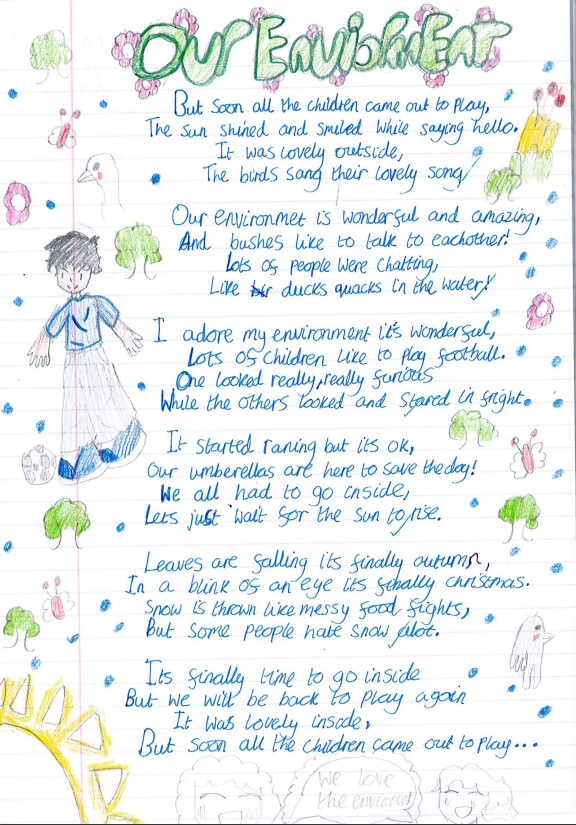 Our Enviorment
But soon all the children came out to play,
The sun shined and smiled while saying hello.
It was lovely outside,
The birds sang their lovely song
Our environmet is wonderful and amazing,
And bushes like to talk to eachother!
Lots of people were chatting,
Like ducks quacks in the water!
I adore my environment it's wonderful,
Lots of children like to play football.
One looked really, really furious
While the others looked and stared in fright.
It started raning but its ok,
Our umberellas are here to save the day!
We all had to go inside,
Lets just wait for the sun to rise.
Leaves are falling its finally autumn,
In a blink of an eye its finally christmas.
Snow is thrown like messy food fights,
But some people hate snow alot.
Its finally time to go inside
But we will be back to play again
It was lovely inside,
But soon all the children came out to play...
We love
the environment